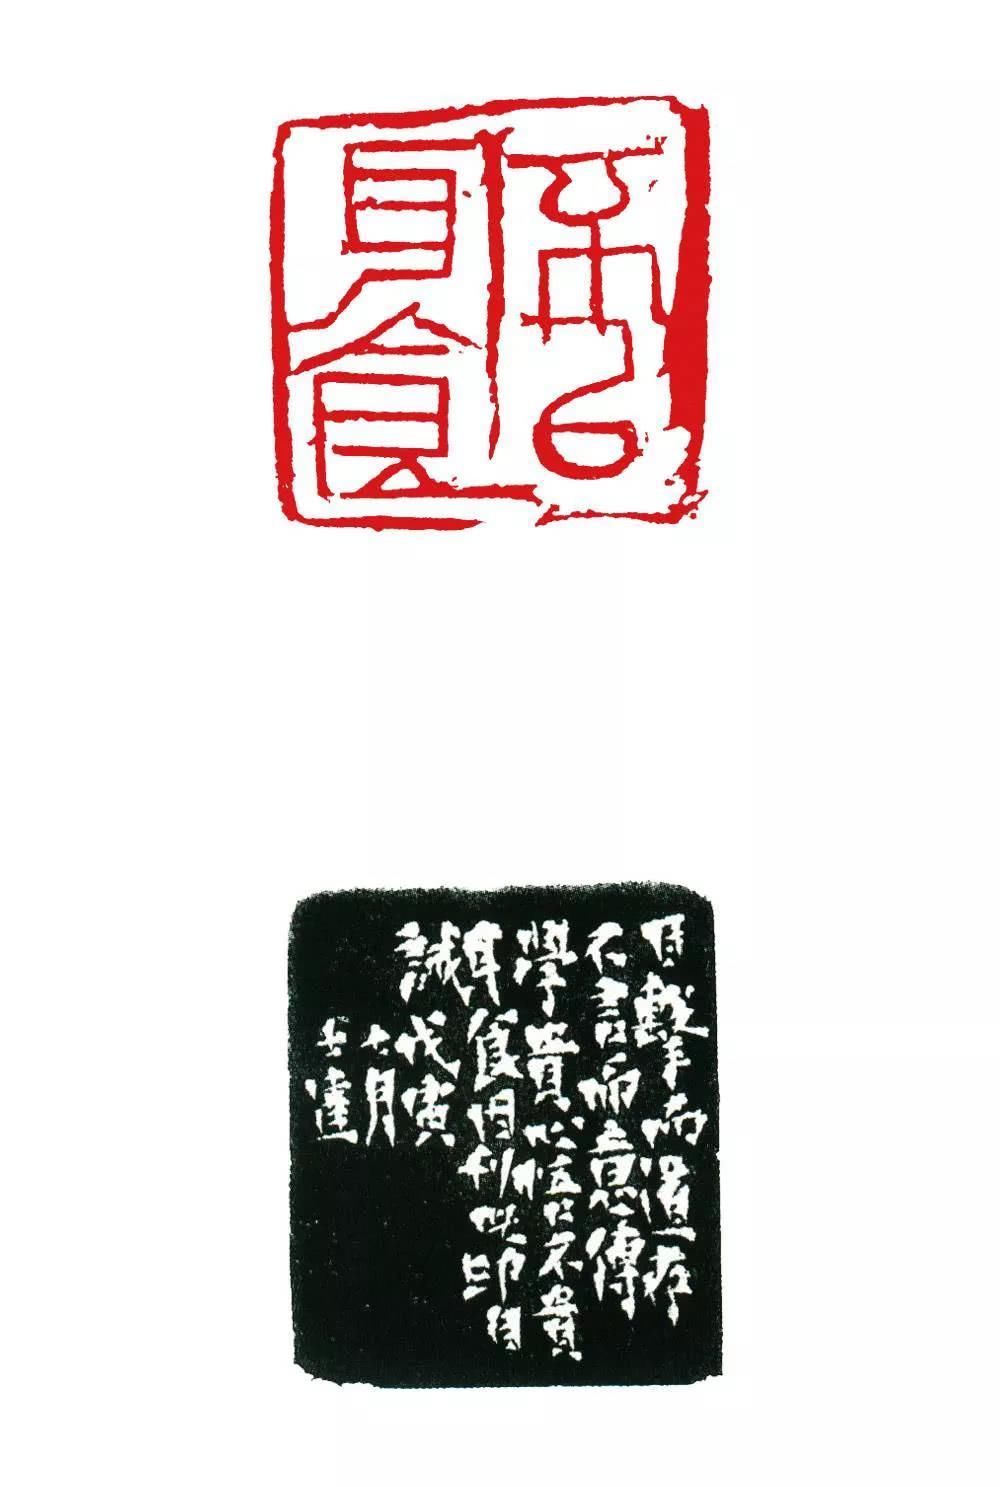 不以
耳食
目擊而道存
不言而意傳
學貴心悟不貴
耳食因刻此印自
誡戊寅
月
士達